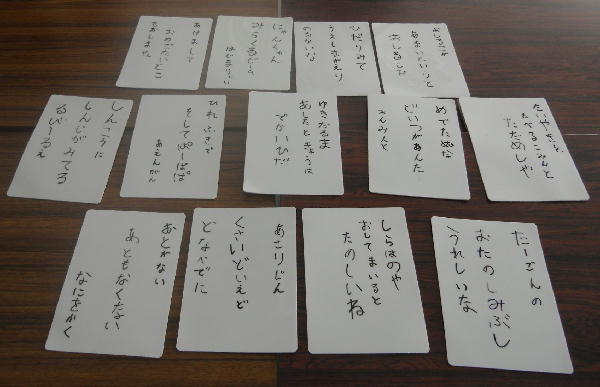 おしょうがつ
あまいにおいと
ひだりみて
うえもさがえり
のらないな
にゃんちゃん
みらくるじゃん
はじまりい
あけまして
おめでたいどこ
もおしません
たいやきと
たべるこみんと
ただめしや
めでたぬな
どいつがあんた
みんみんと
ゆきだるま
あしたときょうは
でないひだ
ひれふきで
そしてぱーぱぱ
あえんがん
しんごうに
しんじがみてる
るびーるえ
たーざんの
おたのしみぶし
うれしいな
しらはのや
おしてまいると
たのしいね
あさりじん
くさいどいえど
どなべでに
おとがない
あともなくたない
なにをがく